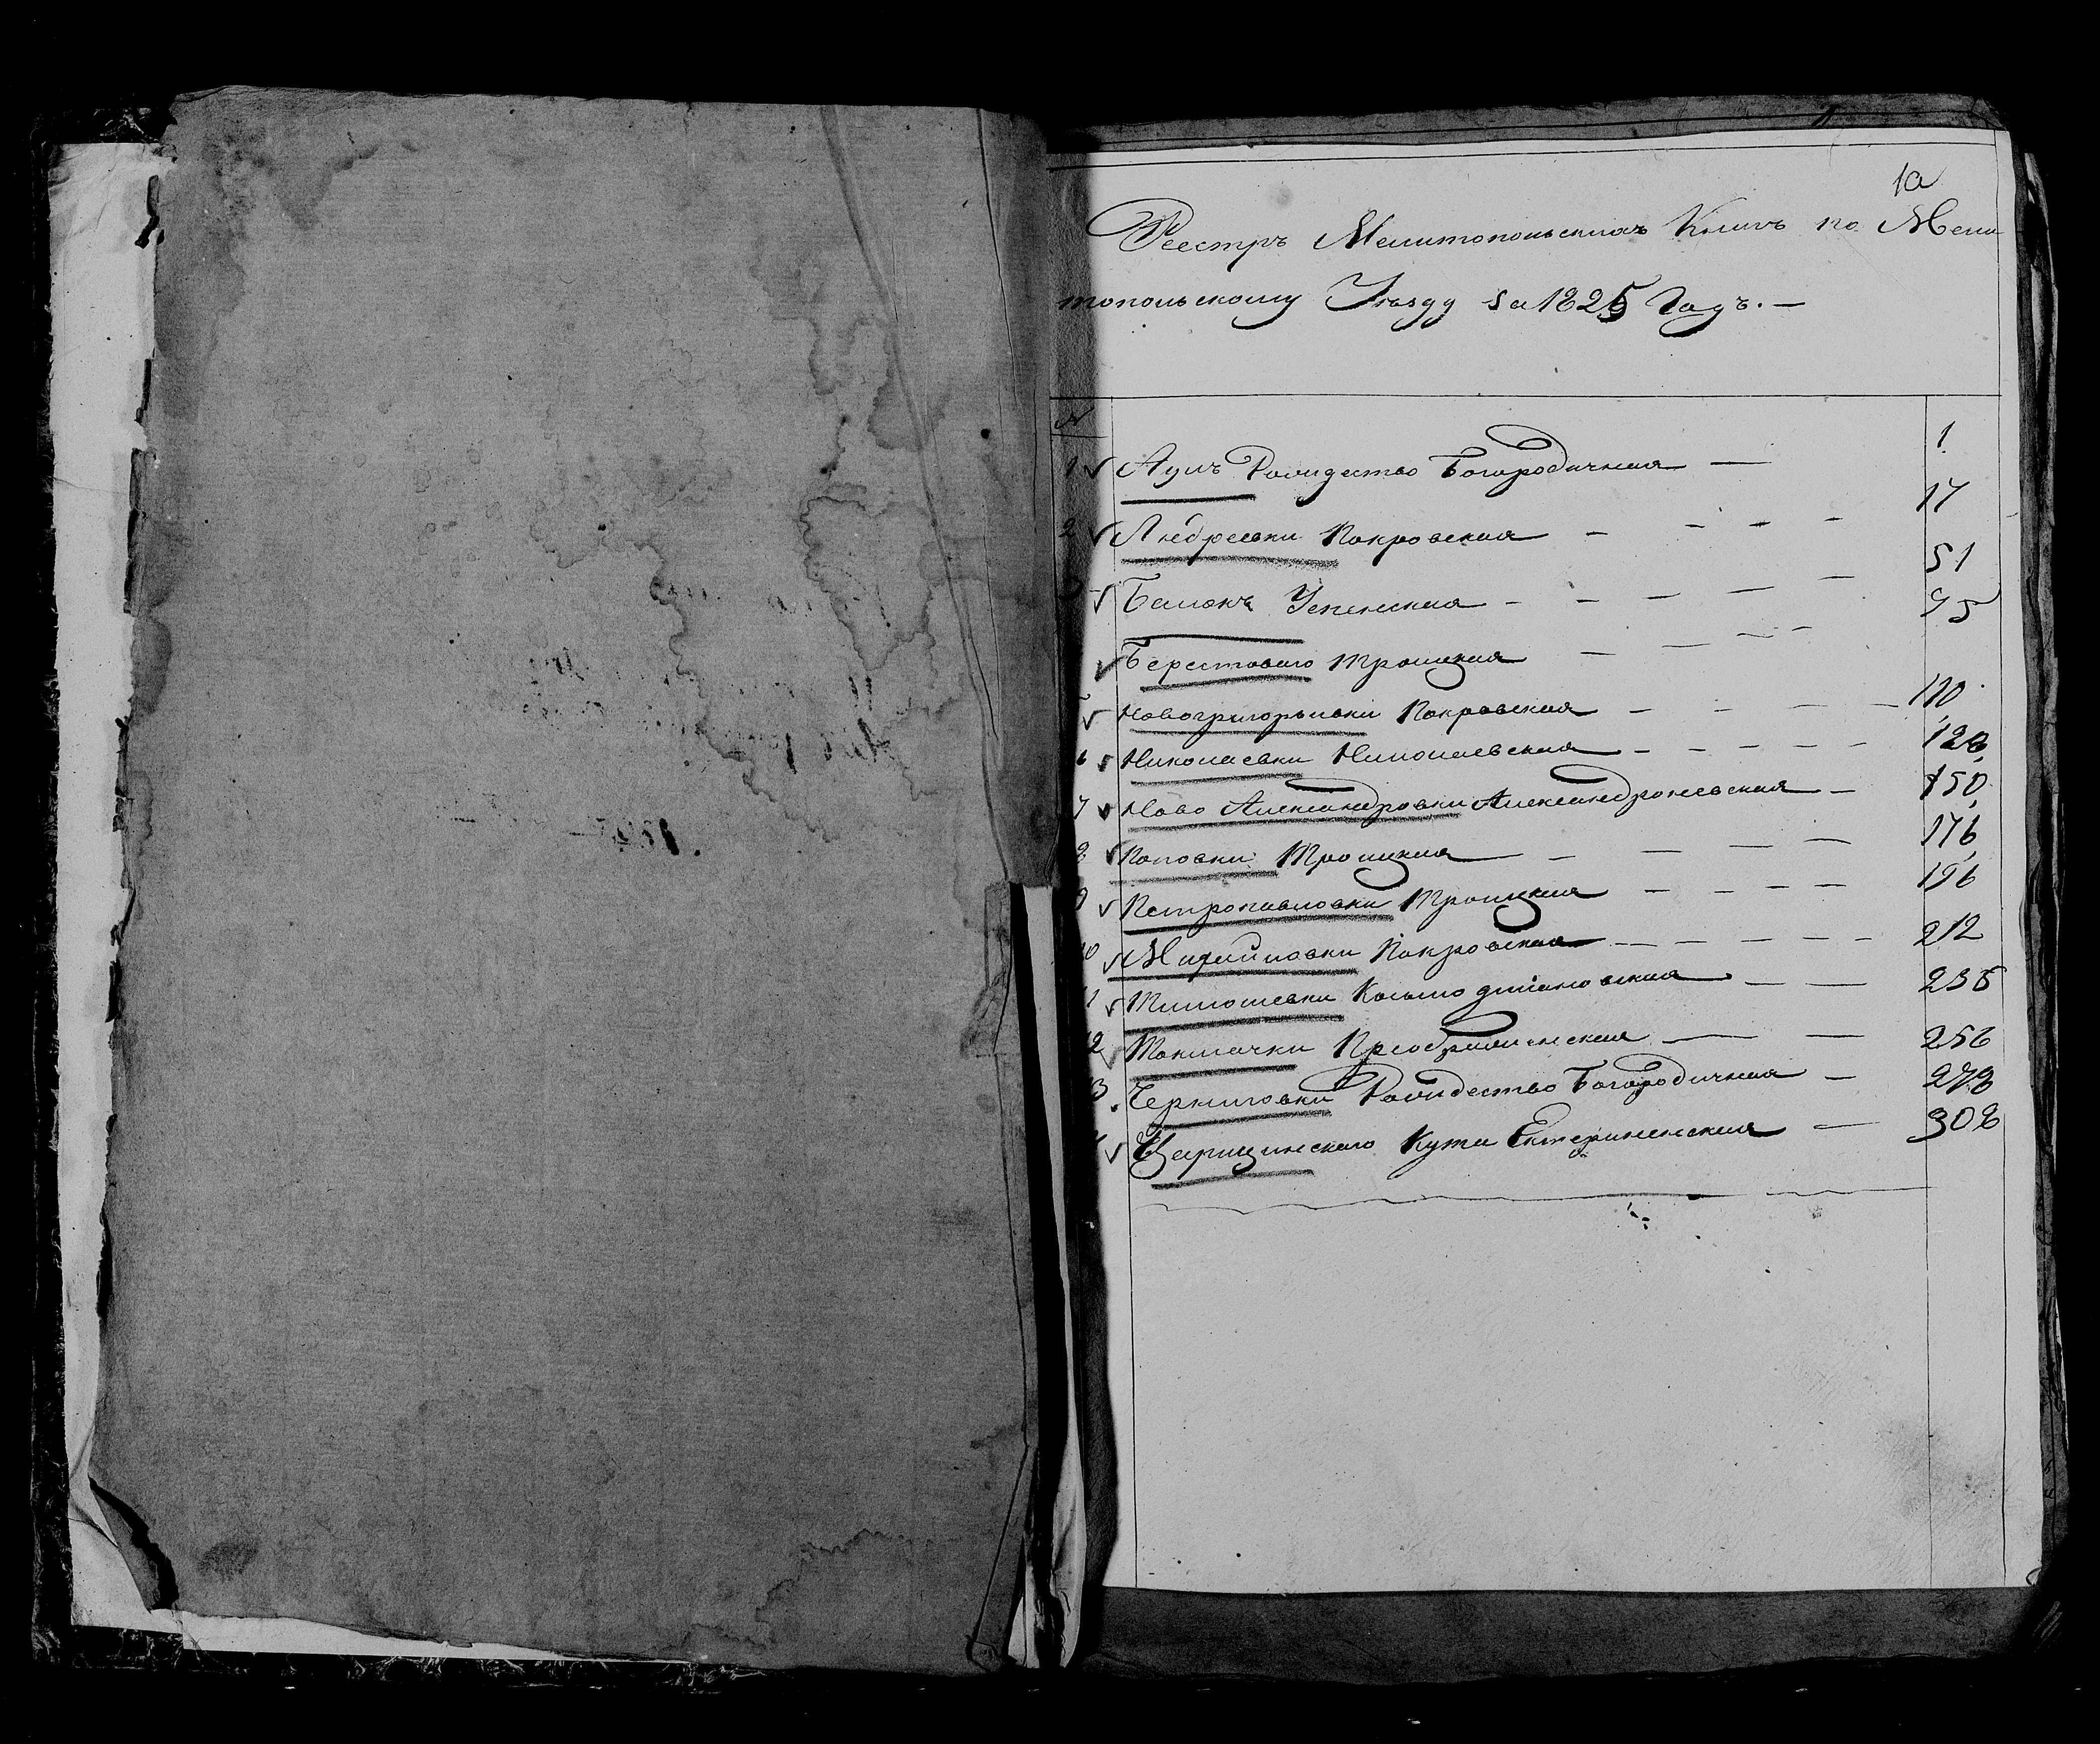 1а
Реестръ Мелитопольскихъ Книгъ по Мели-
топольскому Уезду за 1825 Годъ. —
№
1 Аулъ Рождество Богородичная — 1
2 Андреевки Покровская — 17
Балокъ Успенская — 51
Берестоваго Троицкая — 75
Новогригорьевки Покровская — 110
6 Николаевки Николаевская — 128
7 Ново Александровки Александроневская — 150
8 Поповки Троицкая — 176
9 Петропавловки Троицкая — 196
10 Михайловки Покровская — 212
11 Тимошевки Космодміановская — 235
12 Токмачки Преображенская — 256
13 Черниговки Рождество Богородичная — 278
Царицинскаго Кута Екатерининская — 308